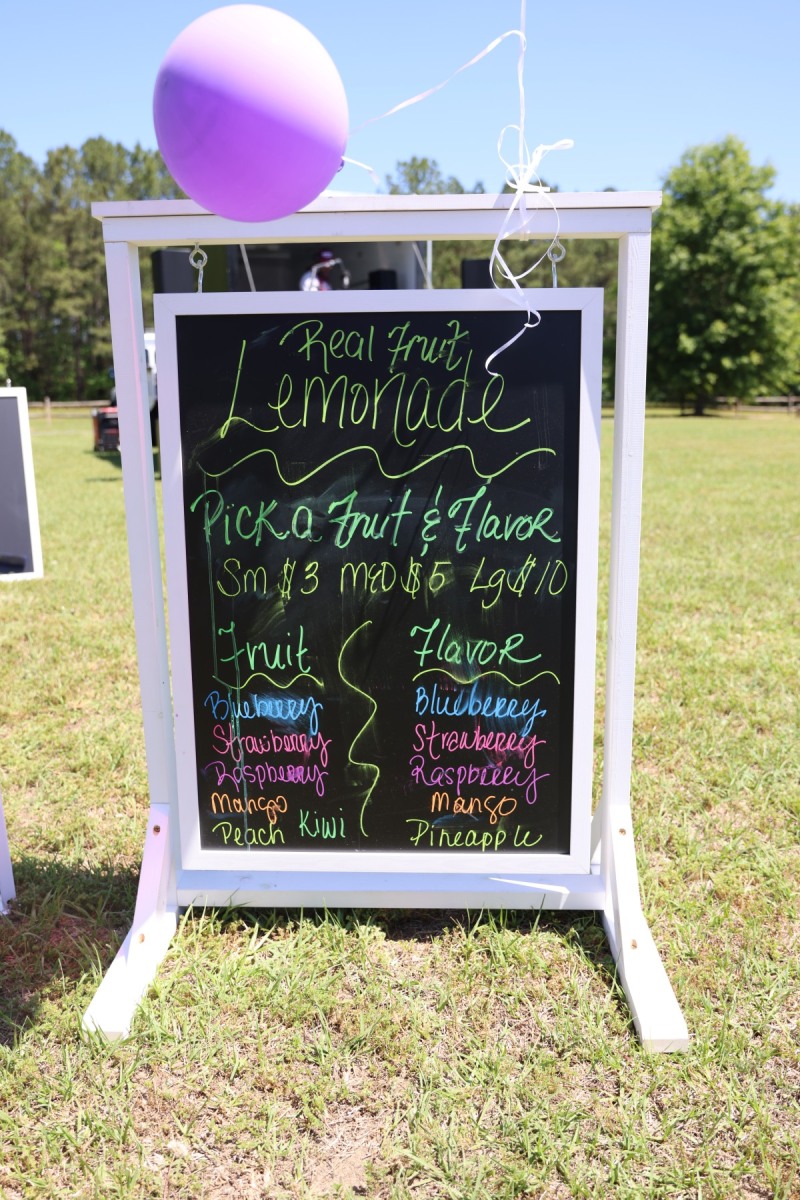 Real Fruit
Lemonade
Pick a Fruit & Flavor
Sm $3 MED $5 Lg $10
Fruit Flavor
Blueberry Blueberry
Strawberry Strawberry
Raspberry Raspberry
Mango Mango
Peach Kiwi Pineapple